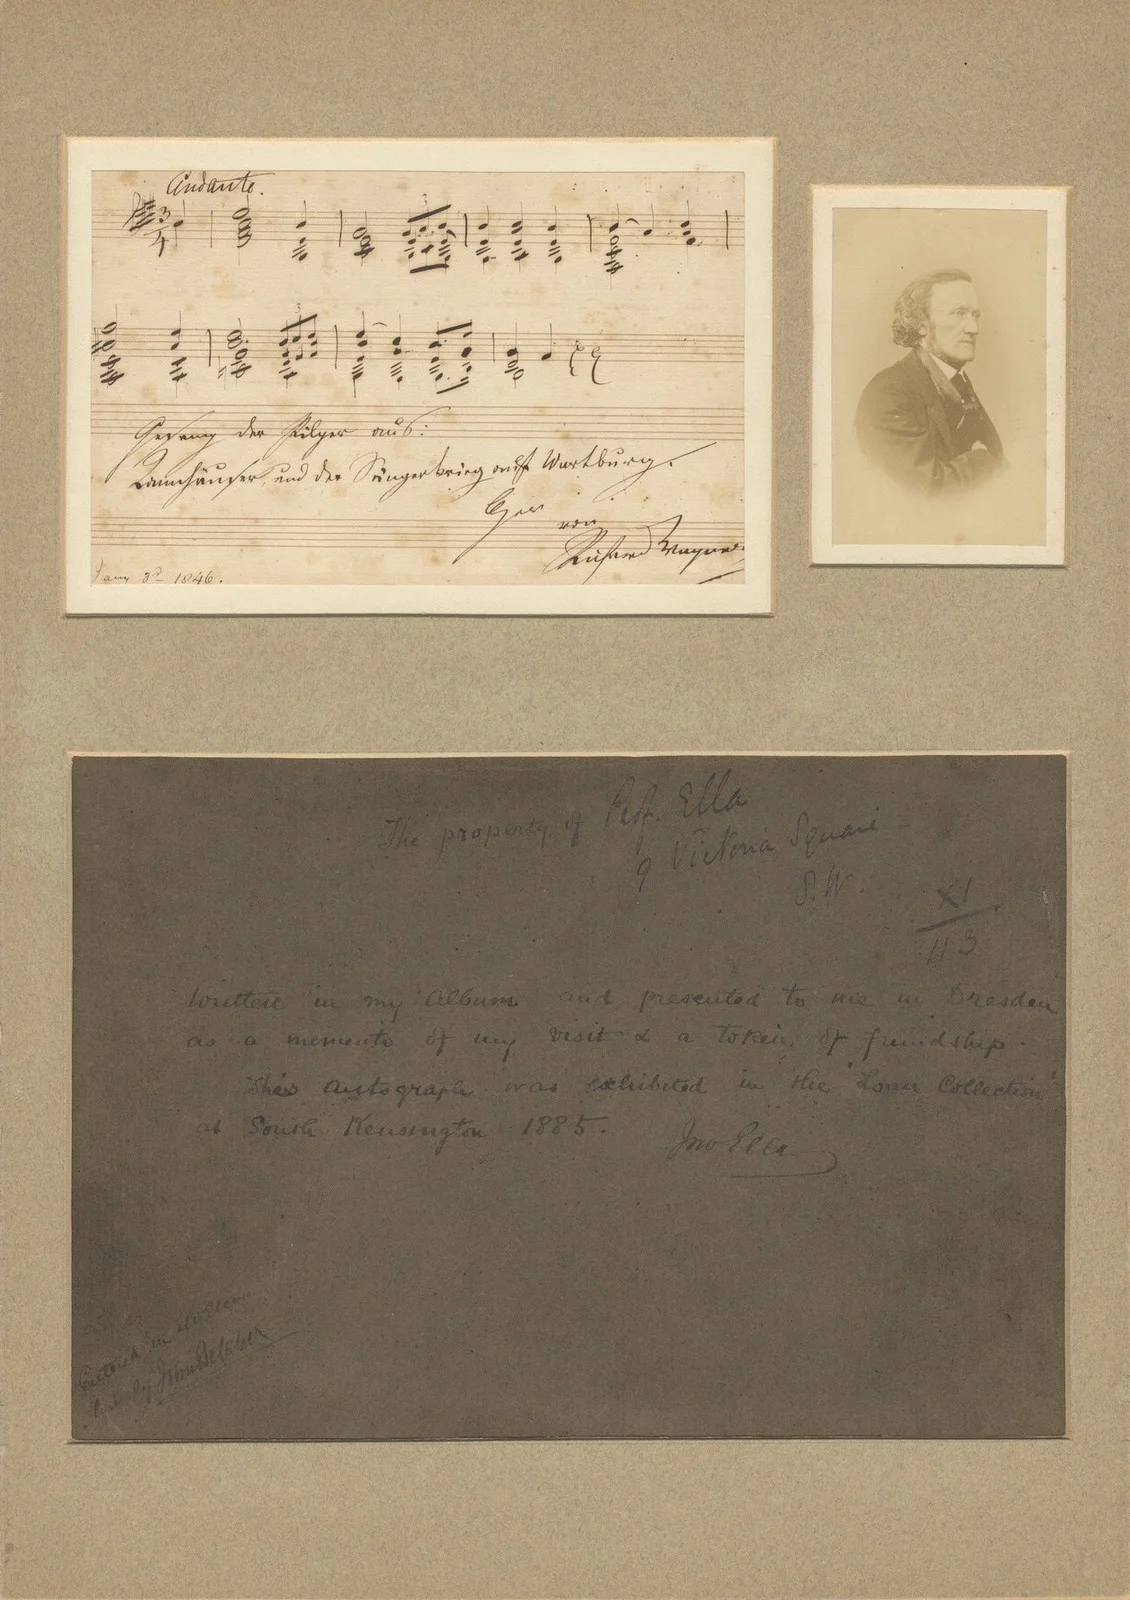 Andante.
3
4
3
3
Gesang der Pilger aus:
Tannhäuser, und der Sängerkrieg auf Wartburg.
Oper von
Richard Wagner
Jany 3d 1846.
The property of Prof. Ella
9 Victoria Square
S.W.
XI
113
Written in my Album and presented to me in Dresden
as a memento of my visit & a token of friendship.
This autograph was exhibited in the "Loan Collection"
at South Kensington 1885.
Jno Ella
in
by